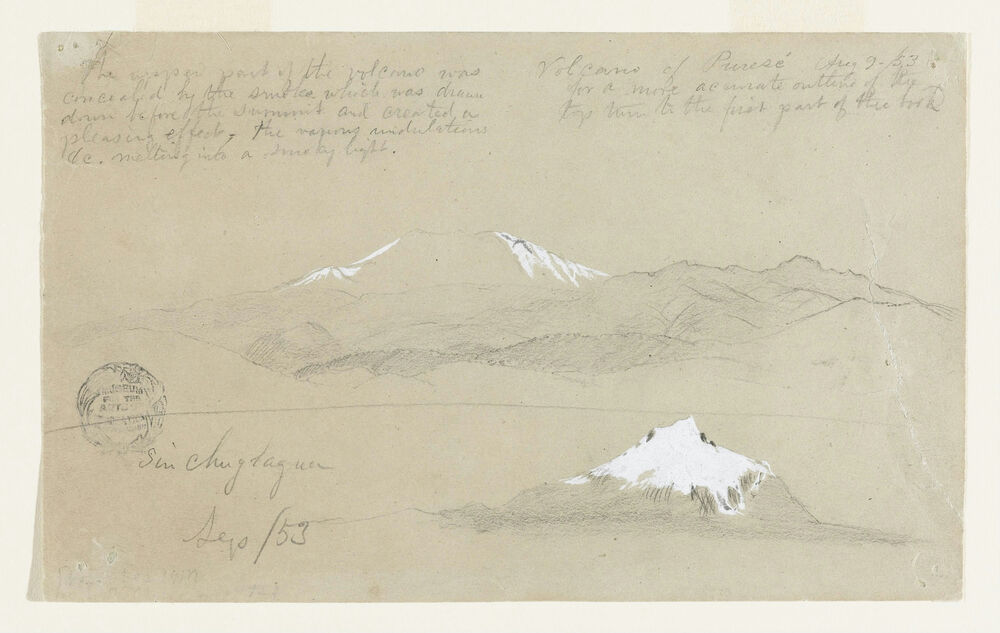 The upper part of the volcano was
concealed by the smoke which was drawn
down before the summit and created a
pleasing effect, the vapory undulations
&c. melting into a smoky light.
Volcano of Puresé Aug 9-/53
for a more accurate outline of the
top turn to the first part of this book
MUSEUM
FOR THE
ARTS
Sinchuglagua
Sep /53